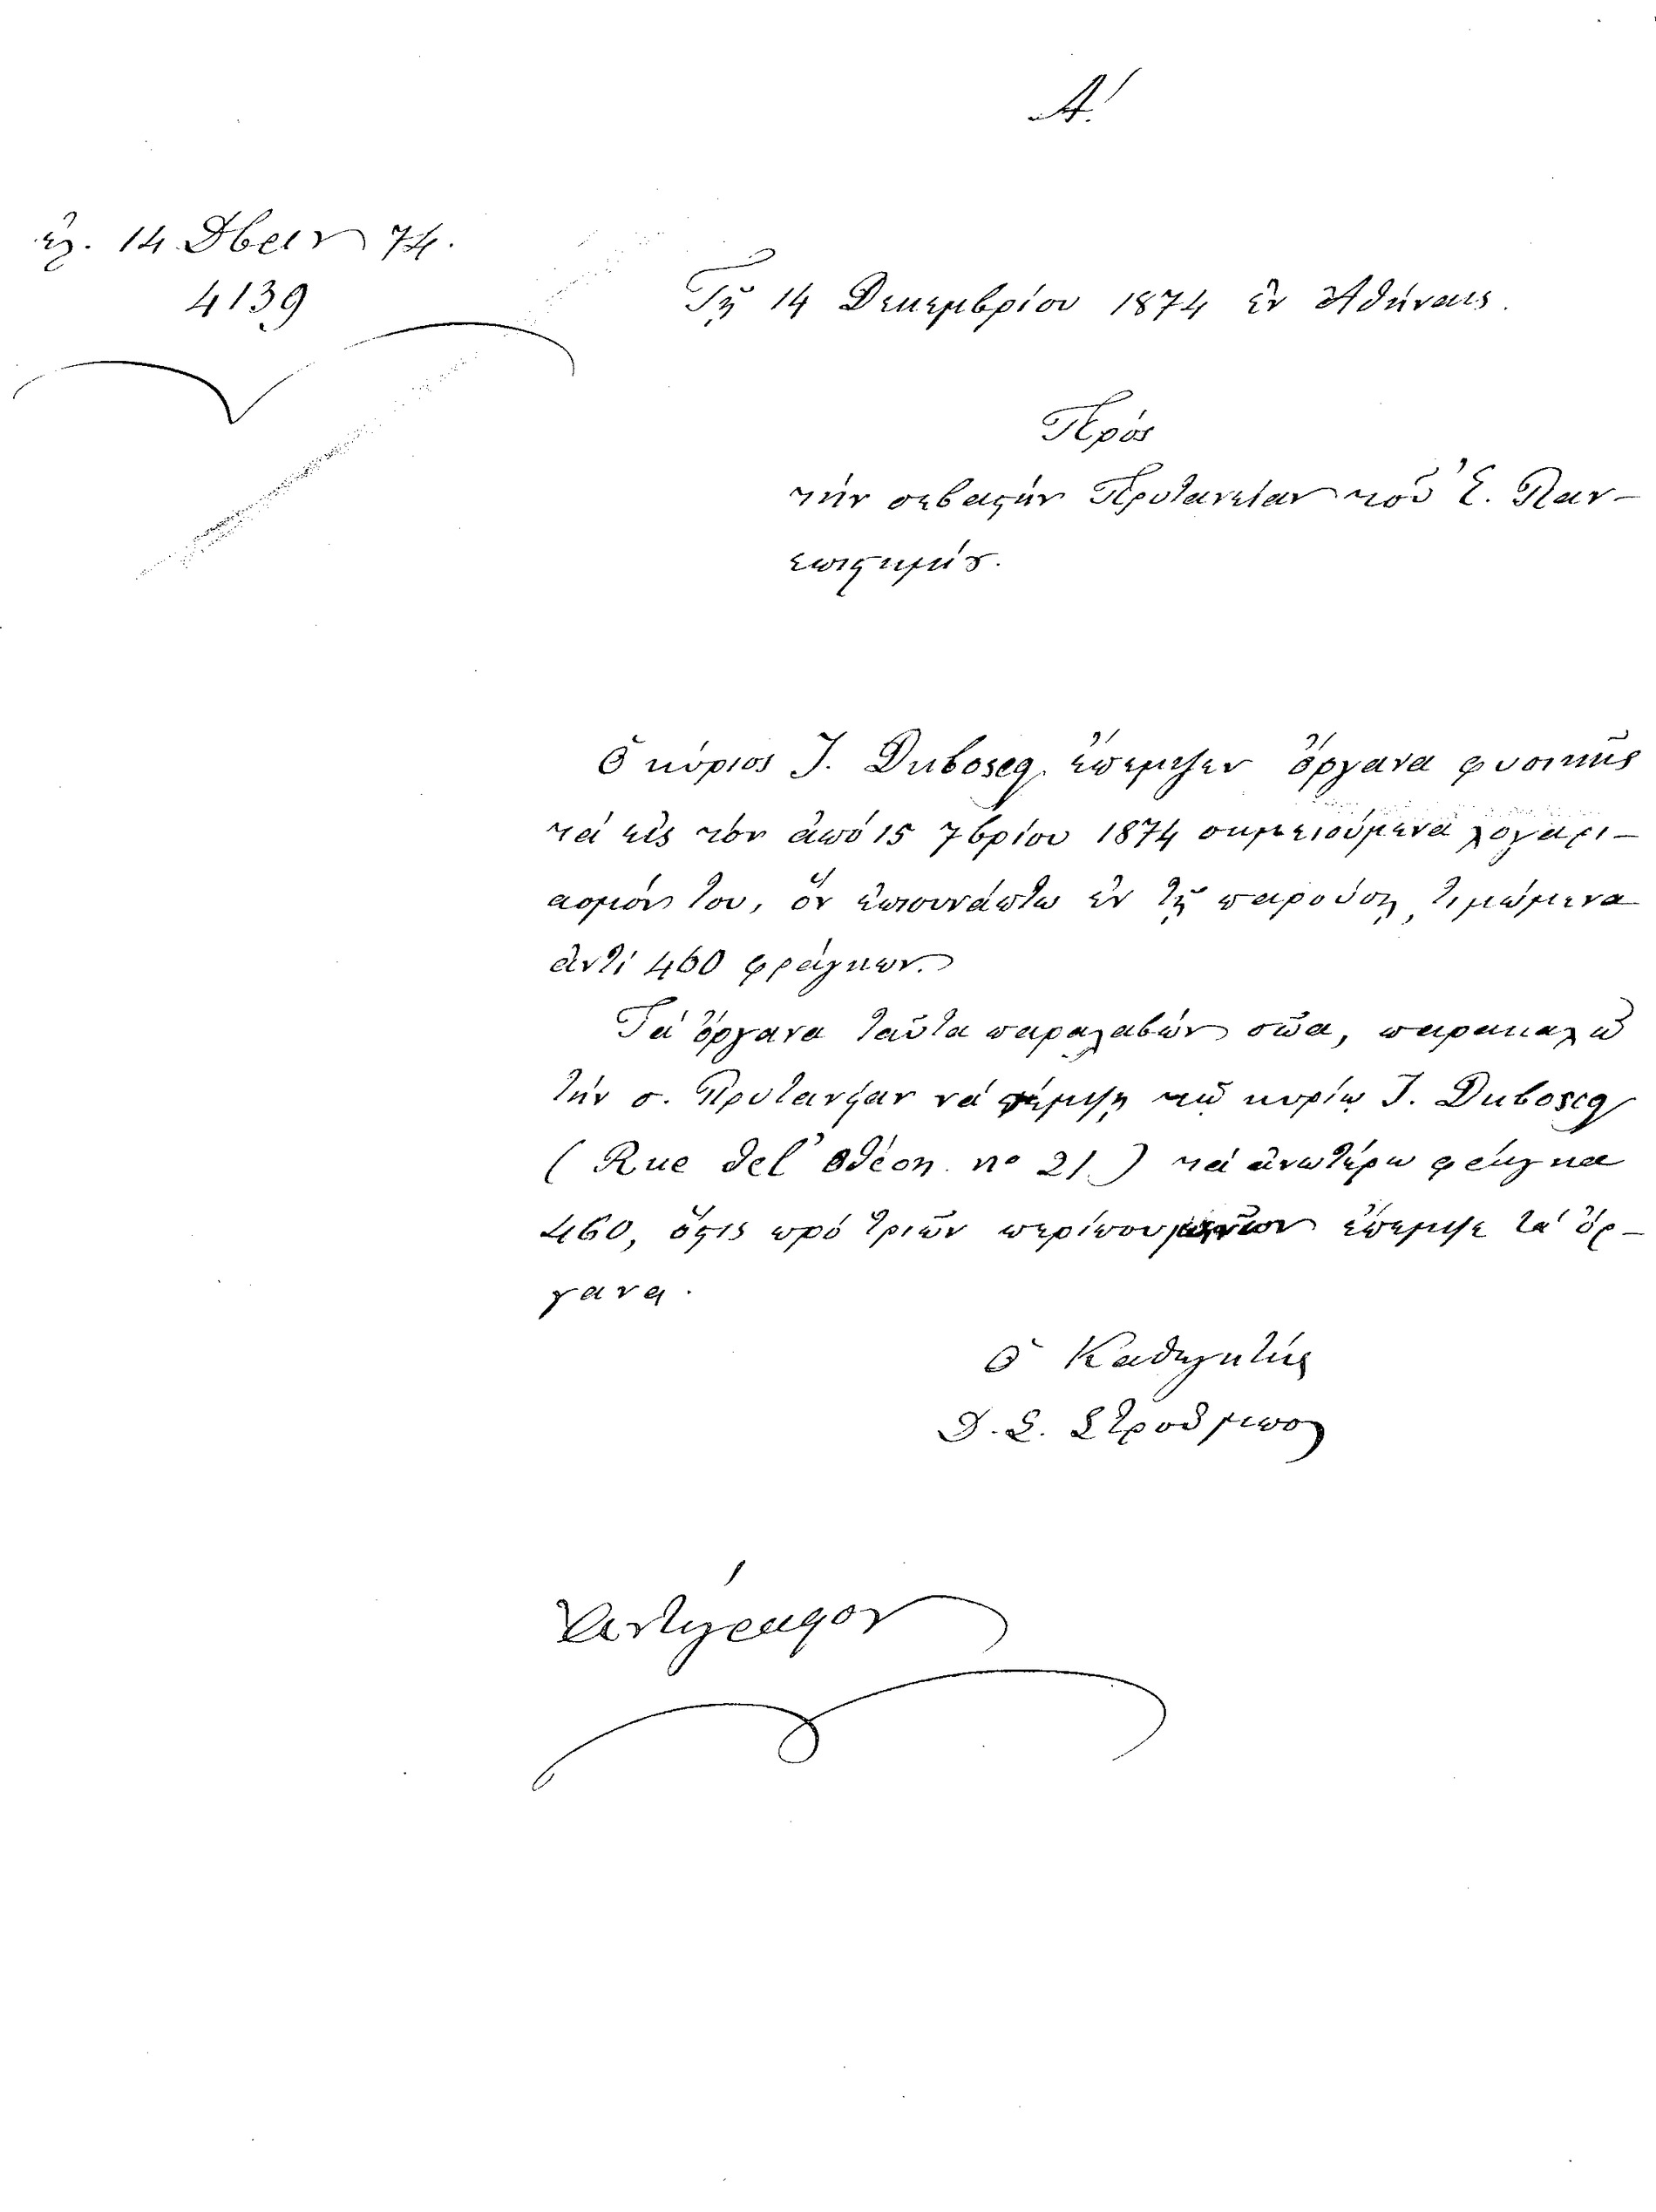 Α′.
ἐλ. 14 Δβρίου 74.
4139
Τῇ 14 Δεκεμβρίου 1874 ἐν Ἀθήναις.
Πρός
τήν σεβαστήν Πρυτανείαν τοῦ Ἐ. Παν-
επιστημίου.
Ὁ κύριος J. Duboscq ἔπεμψεν ὄργανα φυσικῆς
τά εἰς τόν ἀπό 15 7βρίου 1874 σημειούμενα λογαρι-
ασμόν του, ὅν ἐπισυνάπτω ἐν τῇ παρούσῃ, τιμώμενα
ἀντί 460 φράγκων.
Τά ὄργανα ταῦτα παραλαβών σῶα, παρακαλῶ
τήν σ. Πρυτανείαν νά πέμψῃ τῷ κυρίῳ J. Duboscq
(Rue del' Odéon nº 21) τά ἀνωτέρω φράγκα
460, ὅστις πρό τριῶν περίπου μηνῶν ἔπεμψε τά ὄρ-
γανα.
Ὁ Καθηγητής
Δ. Σ. Στροῦμπος
Ἀντίγραφον